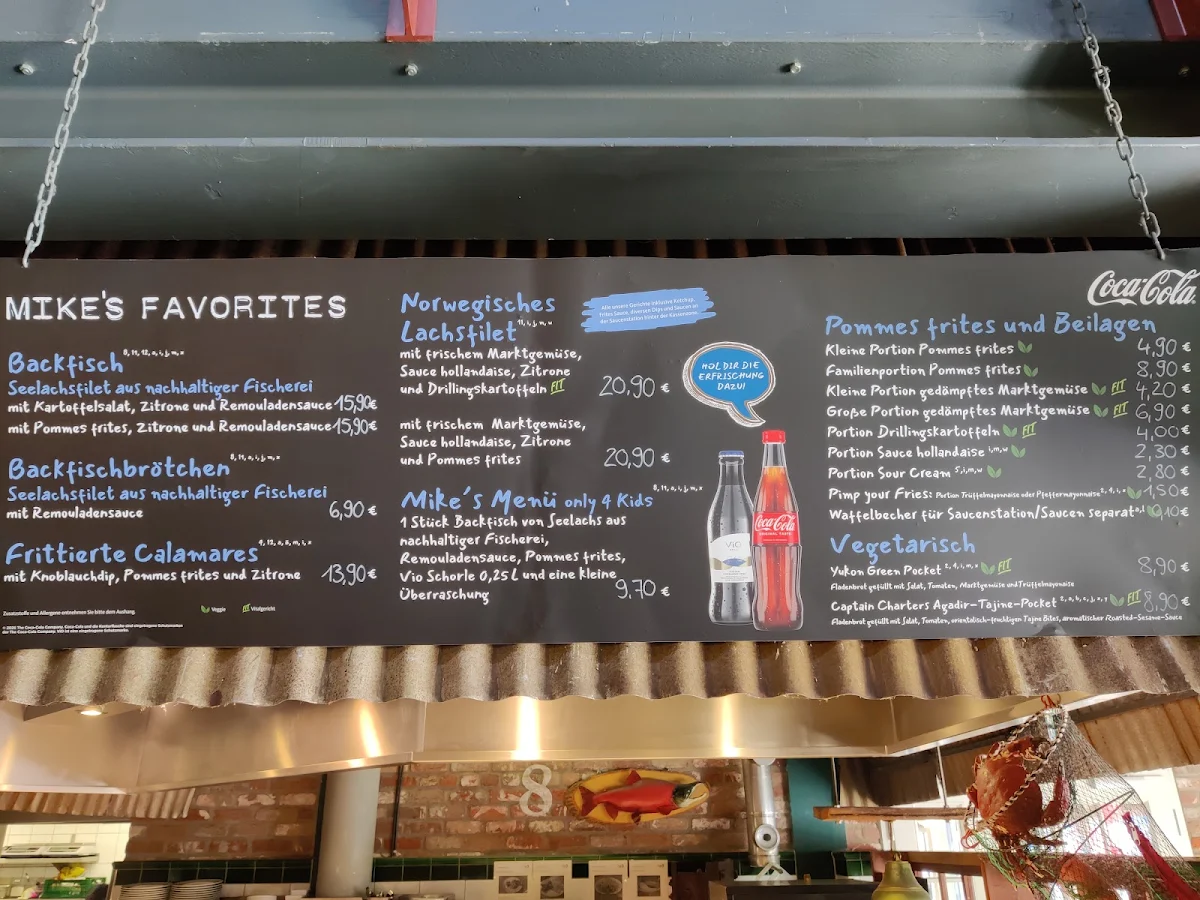 MIKE'S FAVORITES
Backfisch
Seelachsfilet aus nachhaltiger Fischerei
mit Kartoffelsalat, Zitrone und Remouladensauce 15,90€
mit Pommes frites, Zitrone und Remouladensauce 15,90€
Backfischbrötchen
Seelachsfilet aus nachhaltiger Fischerei
mit Remouladensauce 6,90 €
Frittierte Calamares
mit Knoblauchdip, Pommes frites und Zitrone 13,90€
Zusatzstoffe und Allergene entnehmen Sie bitte dem Aushang.
Veggie FIT Vitalgericht
Norwegisches
Lachsfilet
mit frischem Marktgemüse,
Sauce hollandaise, Zitrone
und Drillingskartoffeln FIT 20,90 €
mit frischem Marktgemüse,
Sauce hollandaise, Zitrone
und Pommes frites 20,90 €
Mike's Menü only 4 Kids
1 Stück Backfisch von Seelachs aus
nachhaltiger Fischerei,
Remouladensauce, Pommes frites,
Vio Schorle 0,25L und eine kleine
Überraschung 9,70 €
Alle unsere Gerichte inklusive Ketchup,
Frites Sauce, diversen Dips und Saucen an
der Saucenstation hinter der Kassenzone.
HOL DIR DIE
ERFRISCHUNG
DAZU!
ViO
Coca-Cola
Coca-Cola
Pommes frites und Beilagen
Kleine Portion Pommes frites 4,90 €
Familienportion Pommes frites 8,90 €
Kleine Portion gedämpftes Marktgemüse FIT 4,20 €
Große Portion gedämpftes Marktgemüse FIT 6,90 €
Portion Drillingskartoffeln FIT 4,00 €
Portion Sauce hollandaise 2,30 €
Portion Sour Cream 2,80 €
Pimp your Fries: Portion Trüffelmayonnaise oder Pfeffermayonnaise 1,50€
Waffelbecher für Saucenstation/Saucen separat 0,10€
Vegetarisch
Yukon Green Pocket FIT 8,90 €
Fladenbrot gefüllt mit Salat, Tomaten, Marktgemüse und Trüffelmayonnaise
Captain Charters Agadir-Tajine-Pocket FIT 8,90 €
Fladenbrot gefüllt mit Salat, Tomaten, orientalisch-fruchtigen Tajine Bites, aromatischer Roasted-Sesame-Sauce
8